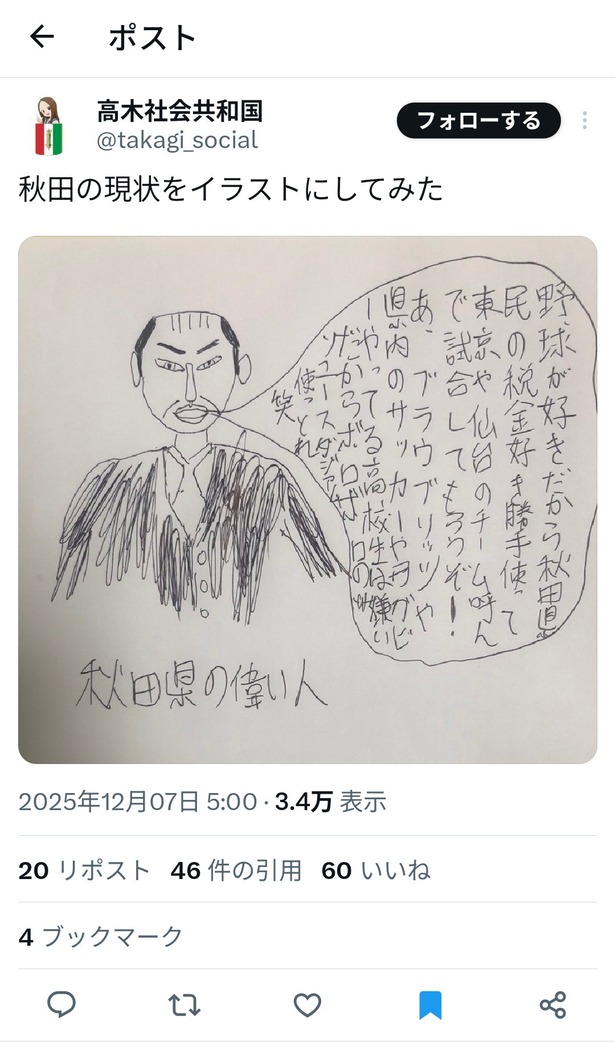 ポスト
高木社会共和国
フォローする
@takagi_social
秋田の現状をイラストにしてみた
野球が好きだから秋田県
民の税金好き勝手使って
東京や仙台のチーム呼ん
で試合してもらうぞ!
あ、ブラウブリッツや
県内のサッカーやラグビ
ーやってる高校生は嫌い
だからボロボロの
ソユースタジアム
使っとれ
笑
秋田県の偉い人
2025年12月07日 5:00 · 3.4万 表示
20 リポスト 46 件の引用 60 いいね
4 ブックマーク